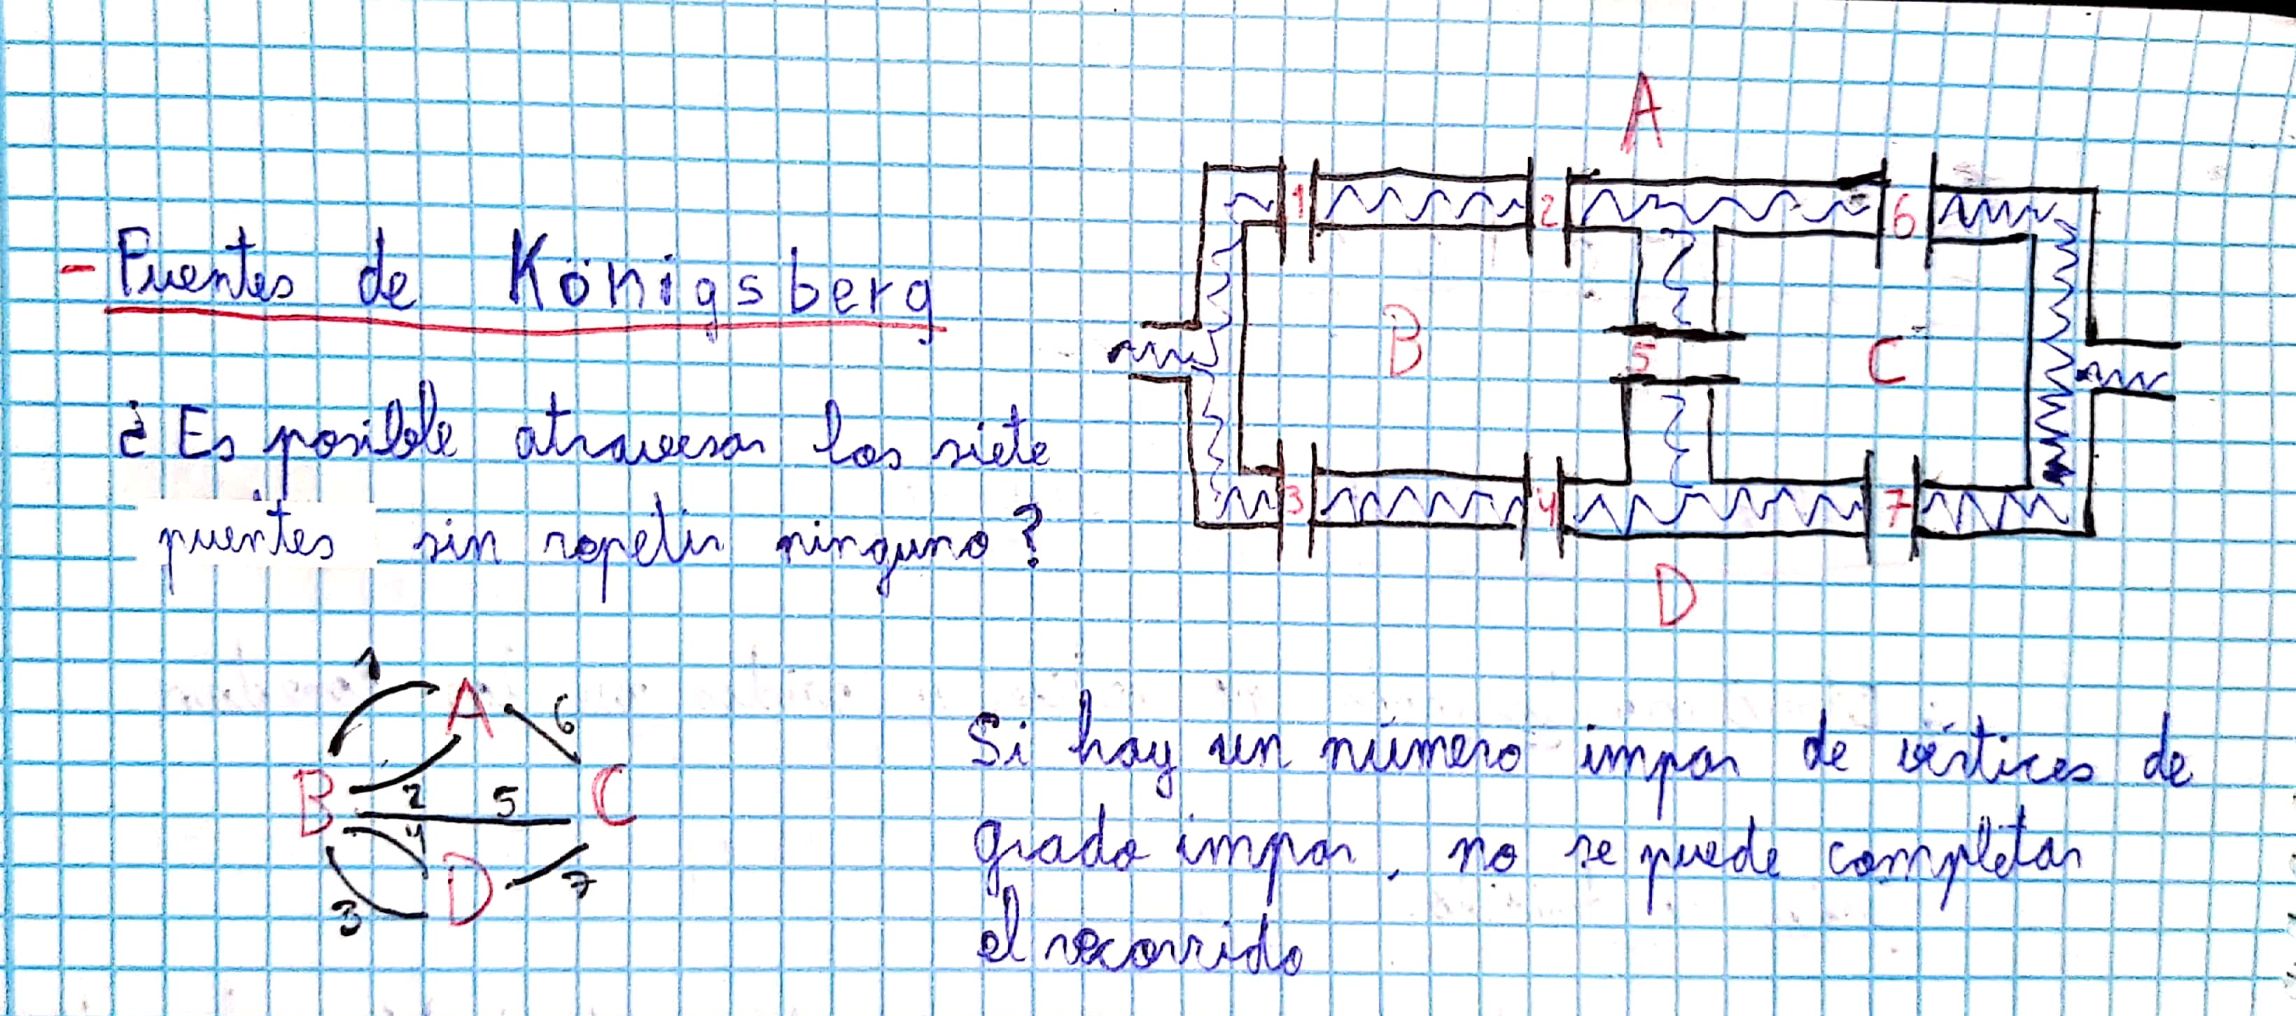 - Puentes de Königsberg
¿Es posible atravesar los siete
puentes sin repetir ninguno?
A
1 2 6
B 5 C
3 4 7
D
1
A 6
B 2 5 C
4
D 7
3
Si hay un número impar de vértices de
grado impar, no se puede completar
el recorrido